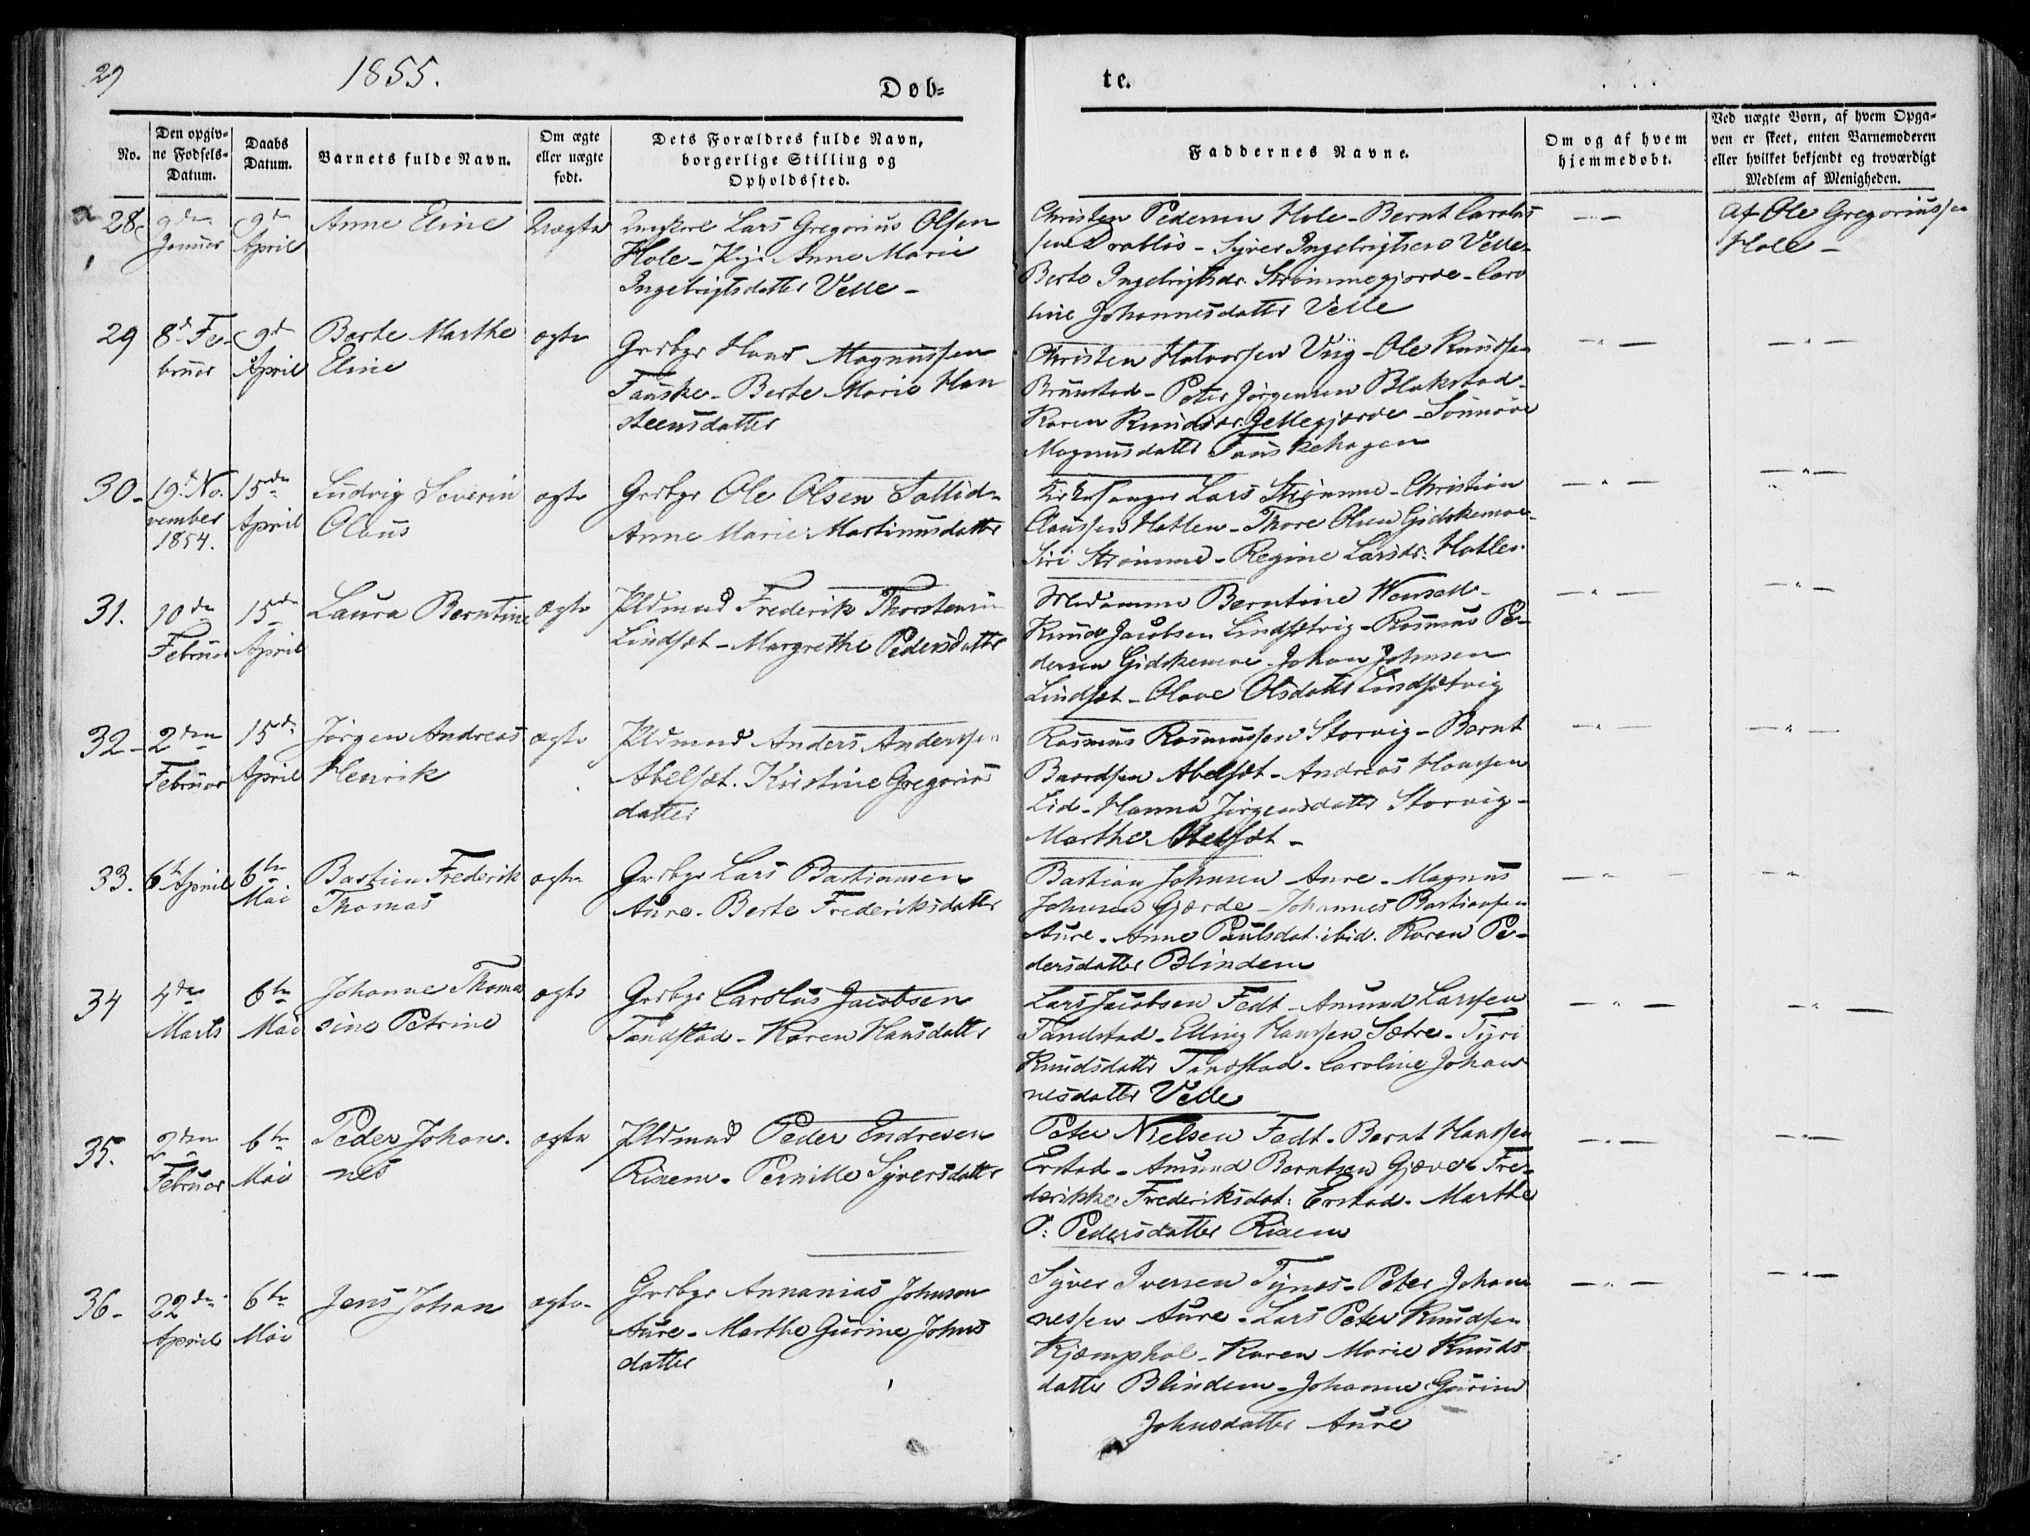 29
1855.
Døb-
te.
No.
Den opgiv-
ne Fødsels-
Datum.
Daabs
Datum.
Barnets fulde Navn.
Om ægte
eller uægte
født.
Dets Forældres fulde Navn,
borgerlige Stilling og
Opholdssted.
Faddernes Navne.
Om og af hvem
hjemmedøbt.
Ved uægte Børn, af hvem Opga-
ven er skeet, enten Barnemoderen
eller hvilket bekjendt og troværdigt
Medlem af Menigheden.
28
9de
Januar
9de
April
Anne Eline
Uægte
Ungkarl Lars Gregorius Olsen
Hole - Pige Anne Marie
Ingebrigtsdatter Velle -
Christen Pedersen Hole - Bernt Carolus
sen Drabløs - Syver Ingebrigtsen Velle -
Berte Ingebrigtsdr. Strømmegjerde - Caro
line Johannesdatter Velle
Af Ole Gregoriussen
Hole -
29
8d Fe-
bruar
9d
April
Berte Marthe
Eline
ægte
Grdbgr Hans Magnussen
Fauske - Berte Marie Han
steensdatter
Christen Halvorsen Viig - Ole Knudsen
Brunstad - Peter Jørgensen Blakstad -
Karen Knudsdr. Jellegjerde - Sønnøve
Magnusdatter Fauskehagen
30 -
19d No-
vember
1854.
15de
April
Ludvig Severin
Olaus
ægte
Grdbgr Ole Olsen Sollid -
Anne Marie Martinusdatter
Kirkesanger Lars Strømme - Christian
Claussen Hatlen - Thore Olsen Gidskemoe -
Siri Strømme - Regine Larsdr. Hatlen
31.
10de
Februar
15de
April
Laura Berntine
ægte
Pldmand Frederik Thorstensen
Lindset - Margrethe Pedersdatter
Madamme Berntine Wensell -
Knud Jacobsen Lindsetvig - Rasmus Pe-
dersen Gidskemoe - Johan Johnsen
Lindset - Olave Olsdatter Lindsetvig
32 -
2den
Februar
15de
April
Jørgen Andreas
Henrik
ægte
Pldmand Anders Anderssen
Abelset. Kristine Gregorius
datter
Rasmus Rasmussen Storvig - Bernt
Baardsen Abelset - Andreas Hanssen
Lid - Hanna Jørgensdatter Storvig -
Marthe Abelset -
33.
6te April
6te
Mai
Bastian Frederik
Thomas
ægte
Grdbgr Lars Bastiansen
Aure. Berte Frederiksdatter
Bastian Johnsen Aure - Magnus
Johnsen Gjerde - Johannes Bastiansen
Aure. Anne Paulsdat. ibid. Karen Pe-
dersdatter Blindem
34
4de
Marts
6te
Mai
Johanne Thoma
sine Petrine
ægte
Grdbgr Carolus Jacobsen
Tandstad - Karen Hansdatter
Lars Jacobsen Fedt - Amund Larssen
Tandstad - Elling Hanssen Sætre - Tyri
Knudsdatter Tandstad. Caroline Johan
nesdatter Velle
35.
2den
Februar
6te
Mai
Peder Johan-
nes
ægte
Pldmand Peder Endresen
Risem - Pernille Syversdatter
Peter Nielsen Fedt - Bernt Hanssen
Erstad - Amund Berntsen Gjævde Fre-
derikke Frederiksdat: Erstad. Marthe
P: Pedersdatter Risem
36 -
22de
April
6te
Mai
Jens Johan
ægte -
Grdbgr Annanias Johnsen
Aure - Marthe Gurine Johns
datter
Syver Iversen Tynes - Peter Johan
nessen Aure - Lars Peter Knudsen
Kjæmphol - Karen Marie Knuds
datter Blindem - Johanne Gurine
Johnsdatter Aure